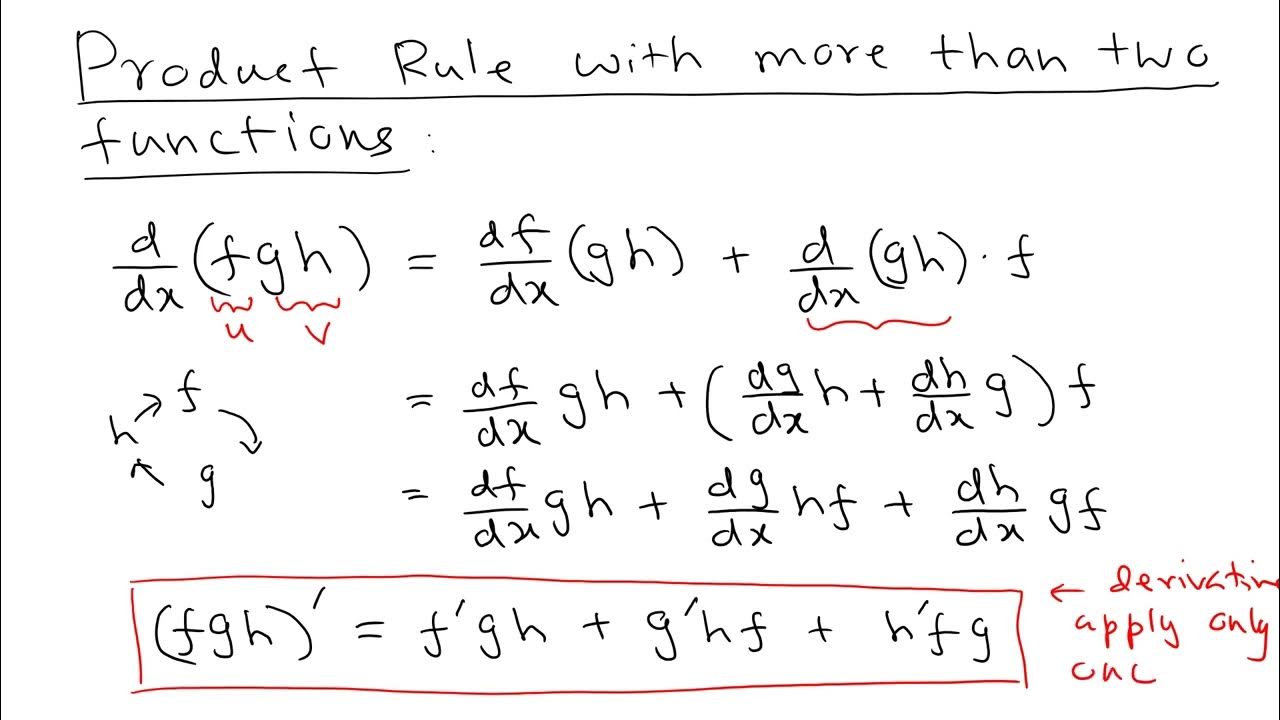 Product Rule with more than two
functions :
d/dx (fgh) = df/dx (gh) + d/dx (gh) · f
u v
= df/dx gh + (dg/dx h + dh/dx g) f
h f g
= df/dx gh + dg/dx hf + dh/dx gf
(fgh)' = f'gh + g'hf + h'fg
← derivative
apply only